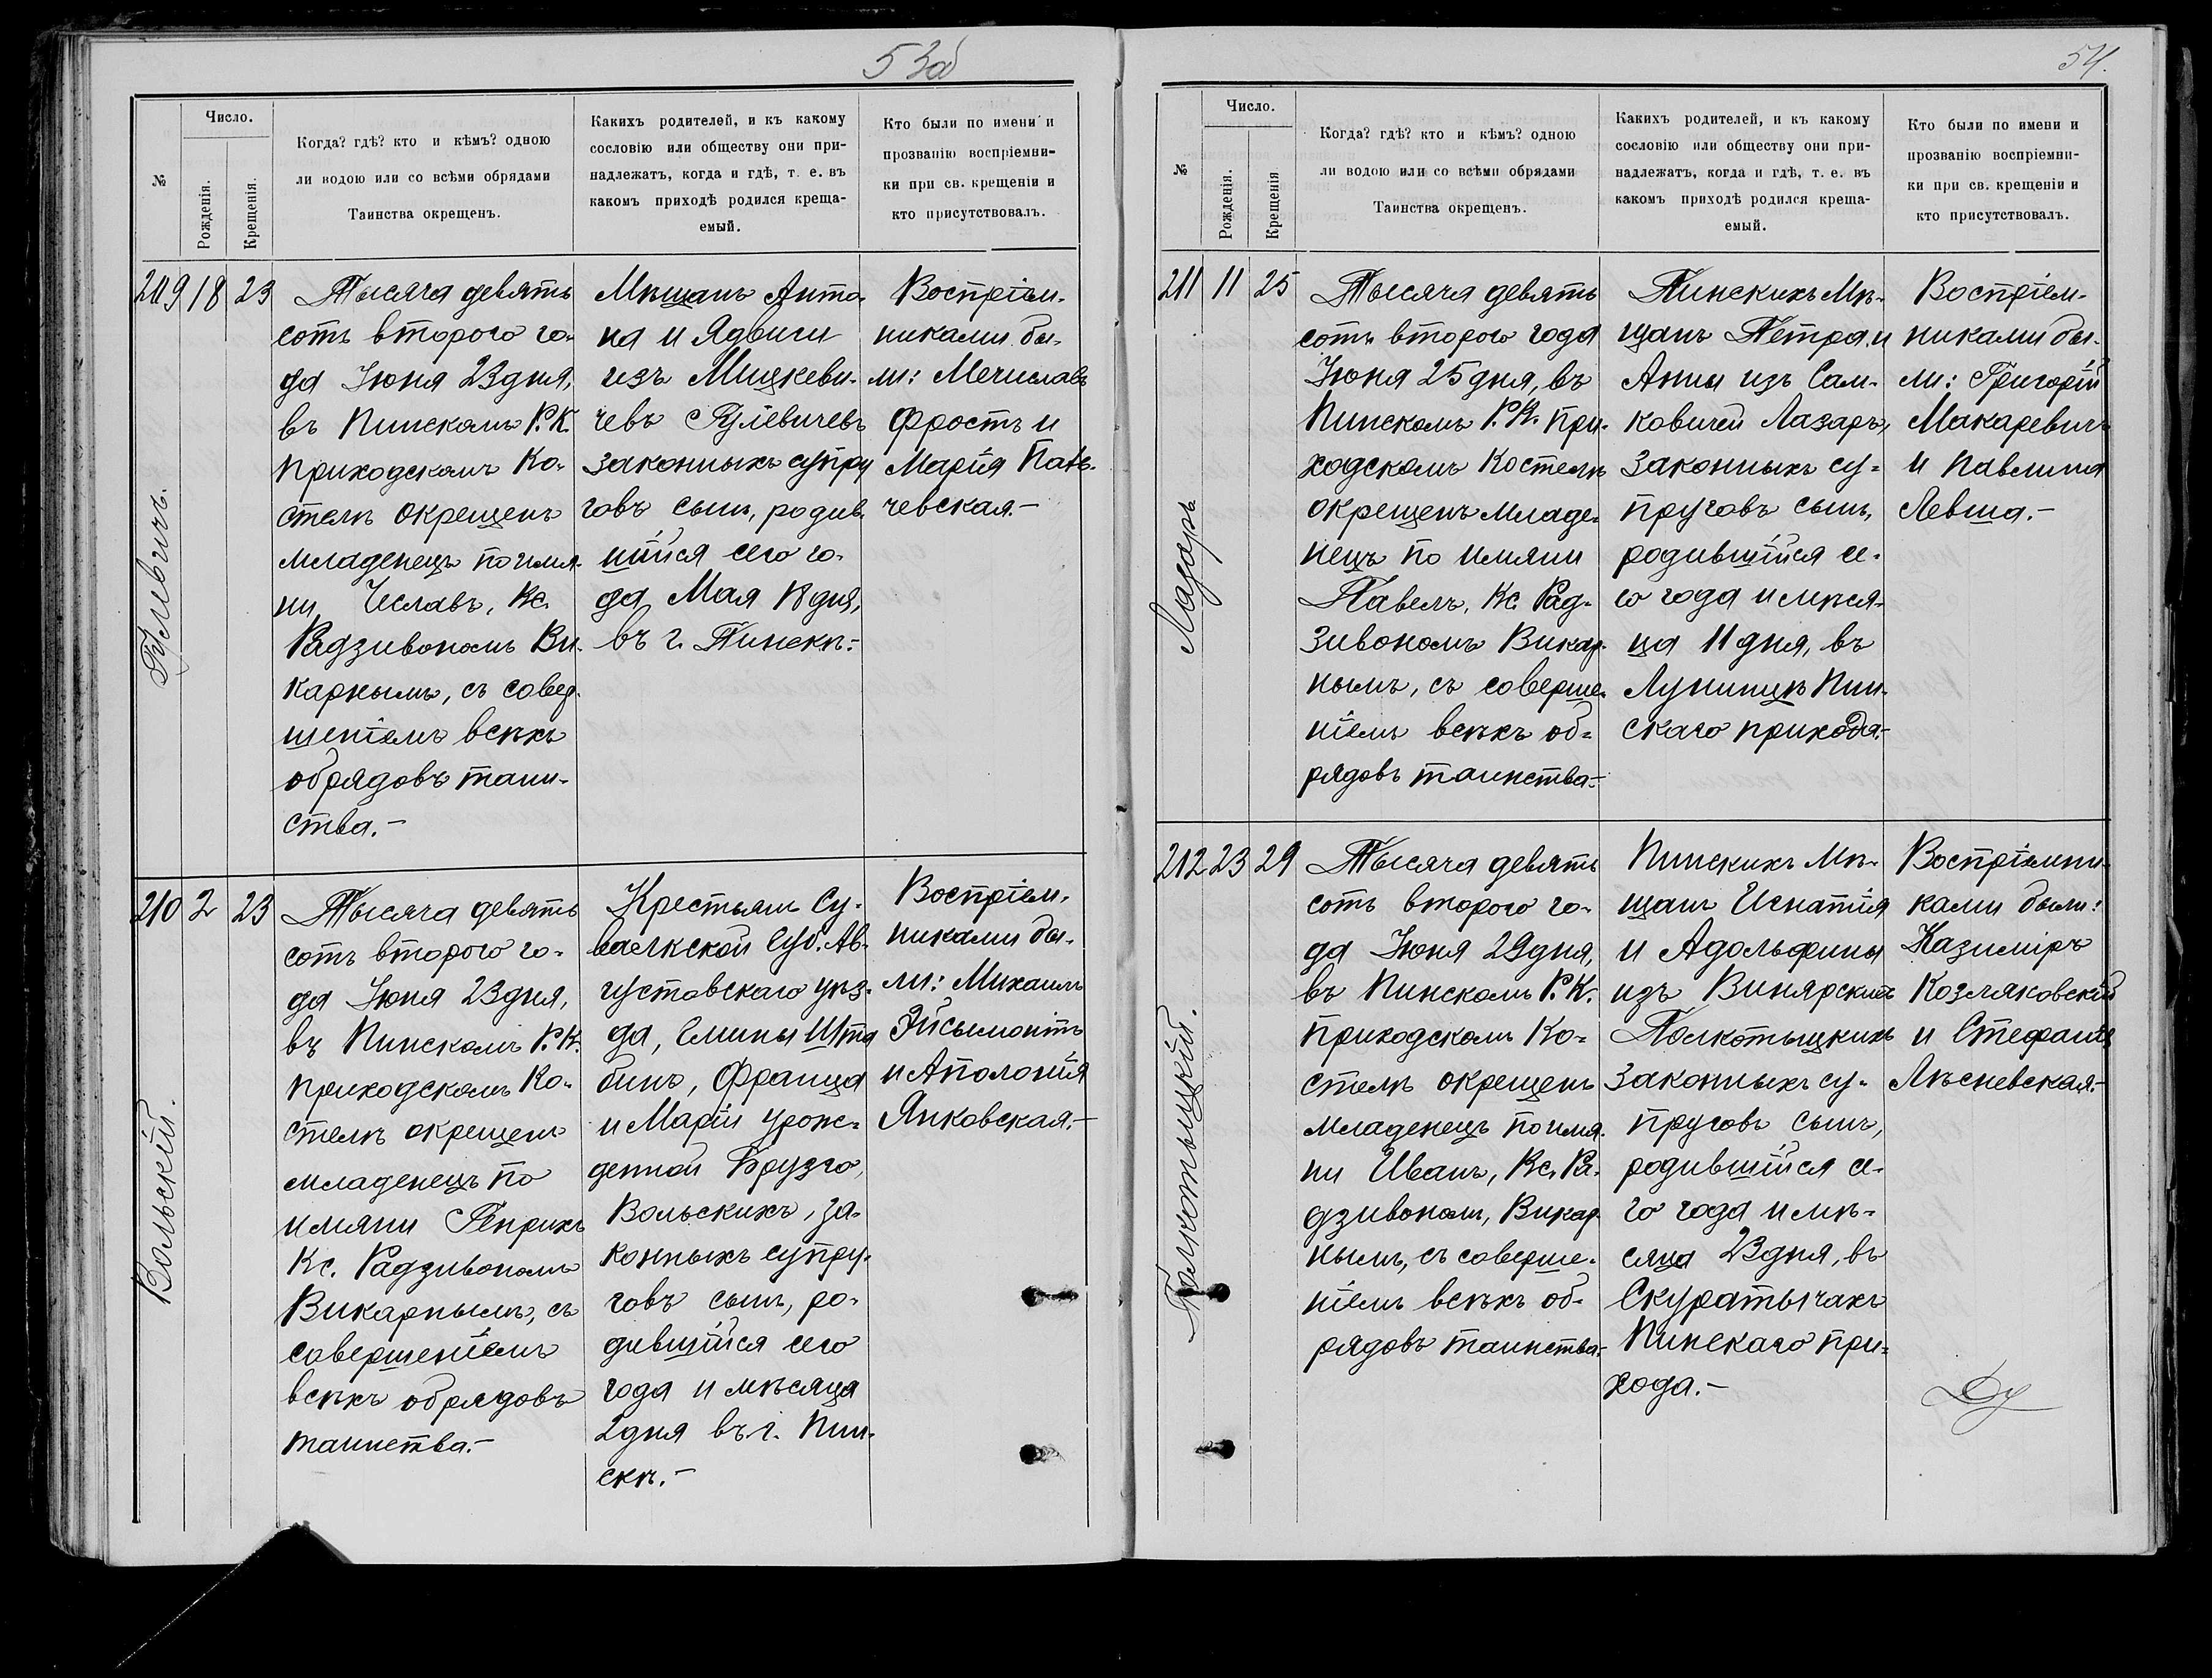 53об
№
Число.
Рожденія.
Крещенія.
Когда? гдѣ? кто и кѣмъ? одною
ли водою или со всѣми обрядами
Таинства окрещенъ.
Какихъ родителей, и къ какому
сословію или обществу они при-
надлежатъ, когда и гдѣ, т. е. въ
какомъ приходѣ родился креща-
емый.
Кто были по имени и
прозванію воспріемни-
ки при св. крещеніи и
кто присутствовалъ.
209 18 23
Гулевичъ.
Тысяча девять
сотъ второго го-
да Іюня 23 дня,
въ Пинскомъ Р.К.
приходскомъ Ко-
стелѣ окрещенъ
младенецъ по имя-
ни Чеславъ, Кс.
Радзивономъ Ви-
карнымъ, съ совер-
шеніемъ всѣхъ
обрядовъ таин-
ства.-
Мѣщанъ Анто-
на и Ядвиги
изъ Мицкеви-
чевъ Гулевичевъ
законныхъ супру
говъ сынъ, родив-
шійся сего го-
да Мая 18 дня,
въ г. Пинскѣ.-
Воспріем-
никами бы-
ли: Мечиславъ
Фростъ и
Марія
чевская.-
210 2 23
Вольскій.
Тысяча девять
сотъ второго го-
да Іюня 23 дня,
въ Пинскомъ Р.К.
приходскомъ Ко-
стелѣ окрещенъ
младенецъ по
имяни Генрихъ
Кс. Радзивономъ
Викарнымъ, съ
совершеніемъ
всѣхъ обрядовъ
таинства.-
Крестьянъ Су-
валкской Губ. Ав-
густовскаго уѣз-
да, Гмины Шта
бинъ, Франца
и Маріи урож-
денной Брузго,
Вольскихъ, за-
конныхъ супру-
говъ сынъ, ро-
дившійся сего
года и мѣсяца
2 дня въ г. Пин-
скѣ.-
Воспріем-
никами бы-
ли: Михаилъ
Эйсымонтъ
и Аполонія
Янковская.-
54.
№
Число.
Рожденія.
Крещенія
Когда? гдѣ? кто и кѣмъ? одною
ли водою или со всѣми обрядами
Таинства окрещенъ.
Какихъ родителей, и къ какому
сословію или обществу они при-
надлежатъ, когда и гдѣ, т. е. въ
какомъ приходѣ родился креща-
емый.
Кто были по имени и
прозванію воспріемни-
ки при св. крещеніи и
кто присутствовалъ.
211 11 25
Лазарь
Тысяча девять
сотъ второго года
Іюня 25 дня, въ
Пинскомъ Р.К. при-
ходскомъ Костелѣ
окрещенъ младе-
нецъ по имяни
Павелъ, Кс. Рад-
зивономъ Викар-
нымъ, съ соверше-
ніемъ всѣхъ об-
рядовъ таинства.-
Пинскихъ Мѣ-
щанъ Петра и
Анны изъ Сам-
ковичей Лазарь,
законныхъ су-
пруговъ сынъ,
родившійся се-
го года и мѣся-
ца 11 дня, въ
Лунинцѣ Пин-
скаго прихода.-
Воспріем-
никами бы-
ли: Григорій
Макаревичъ
и Павлина
Левша.-
212 23 29
Полкотыцкій.
Тысяча девять
сотъ второго го-
да Іюня 29 дня,
въ Пинскомъ Р.К.
приходскомъ Ко-
стелѣ окрещенъ
младенецъ по имя-
ни Иванъ, Кс. Ра-
дзивономъ, Викар-
нымъ, съ соверше-
ніемъ всѣхъ об-
рядовъ таинства.-
Пинскихъ Мѣ-
щанъ Игнатія
и Адольфины
изъ Винярскихъ
Полкотыцкихъ
законныхъ су-
пруговъ сынъ,
родившійся се-
го года и мѣ-
сяца 23 дня, въ
Скуратычахъ
Пинскаго при-
хода.-
Воспріемни-
ками были:
Казиміръ
Козляковскій
и Стефанія
Лѣсневская.-